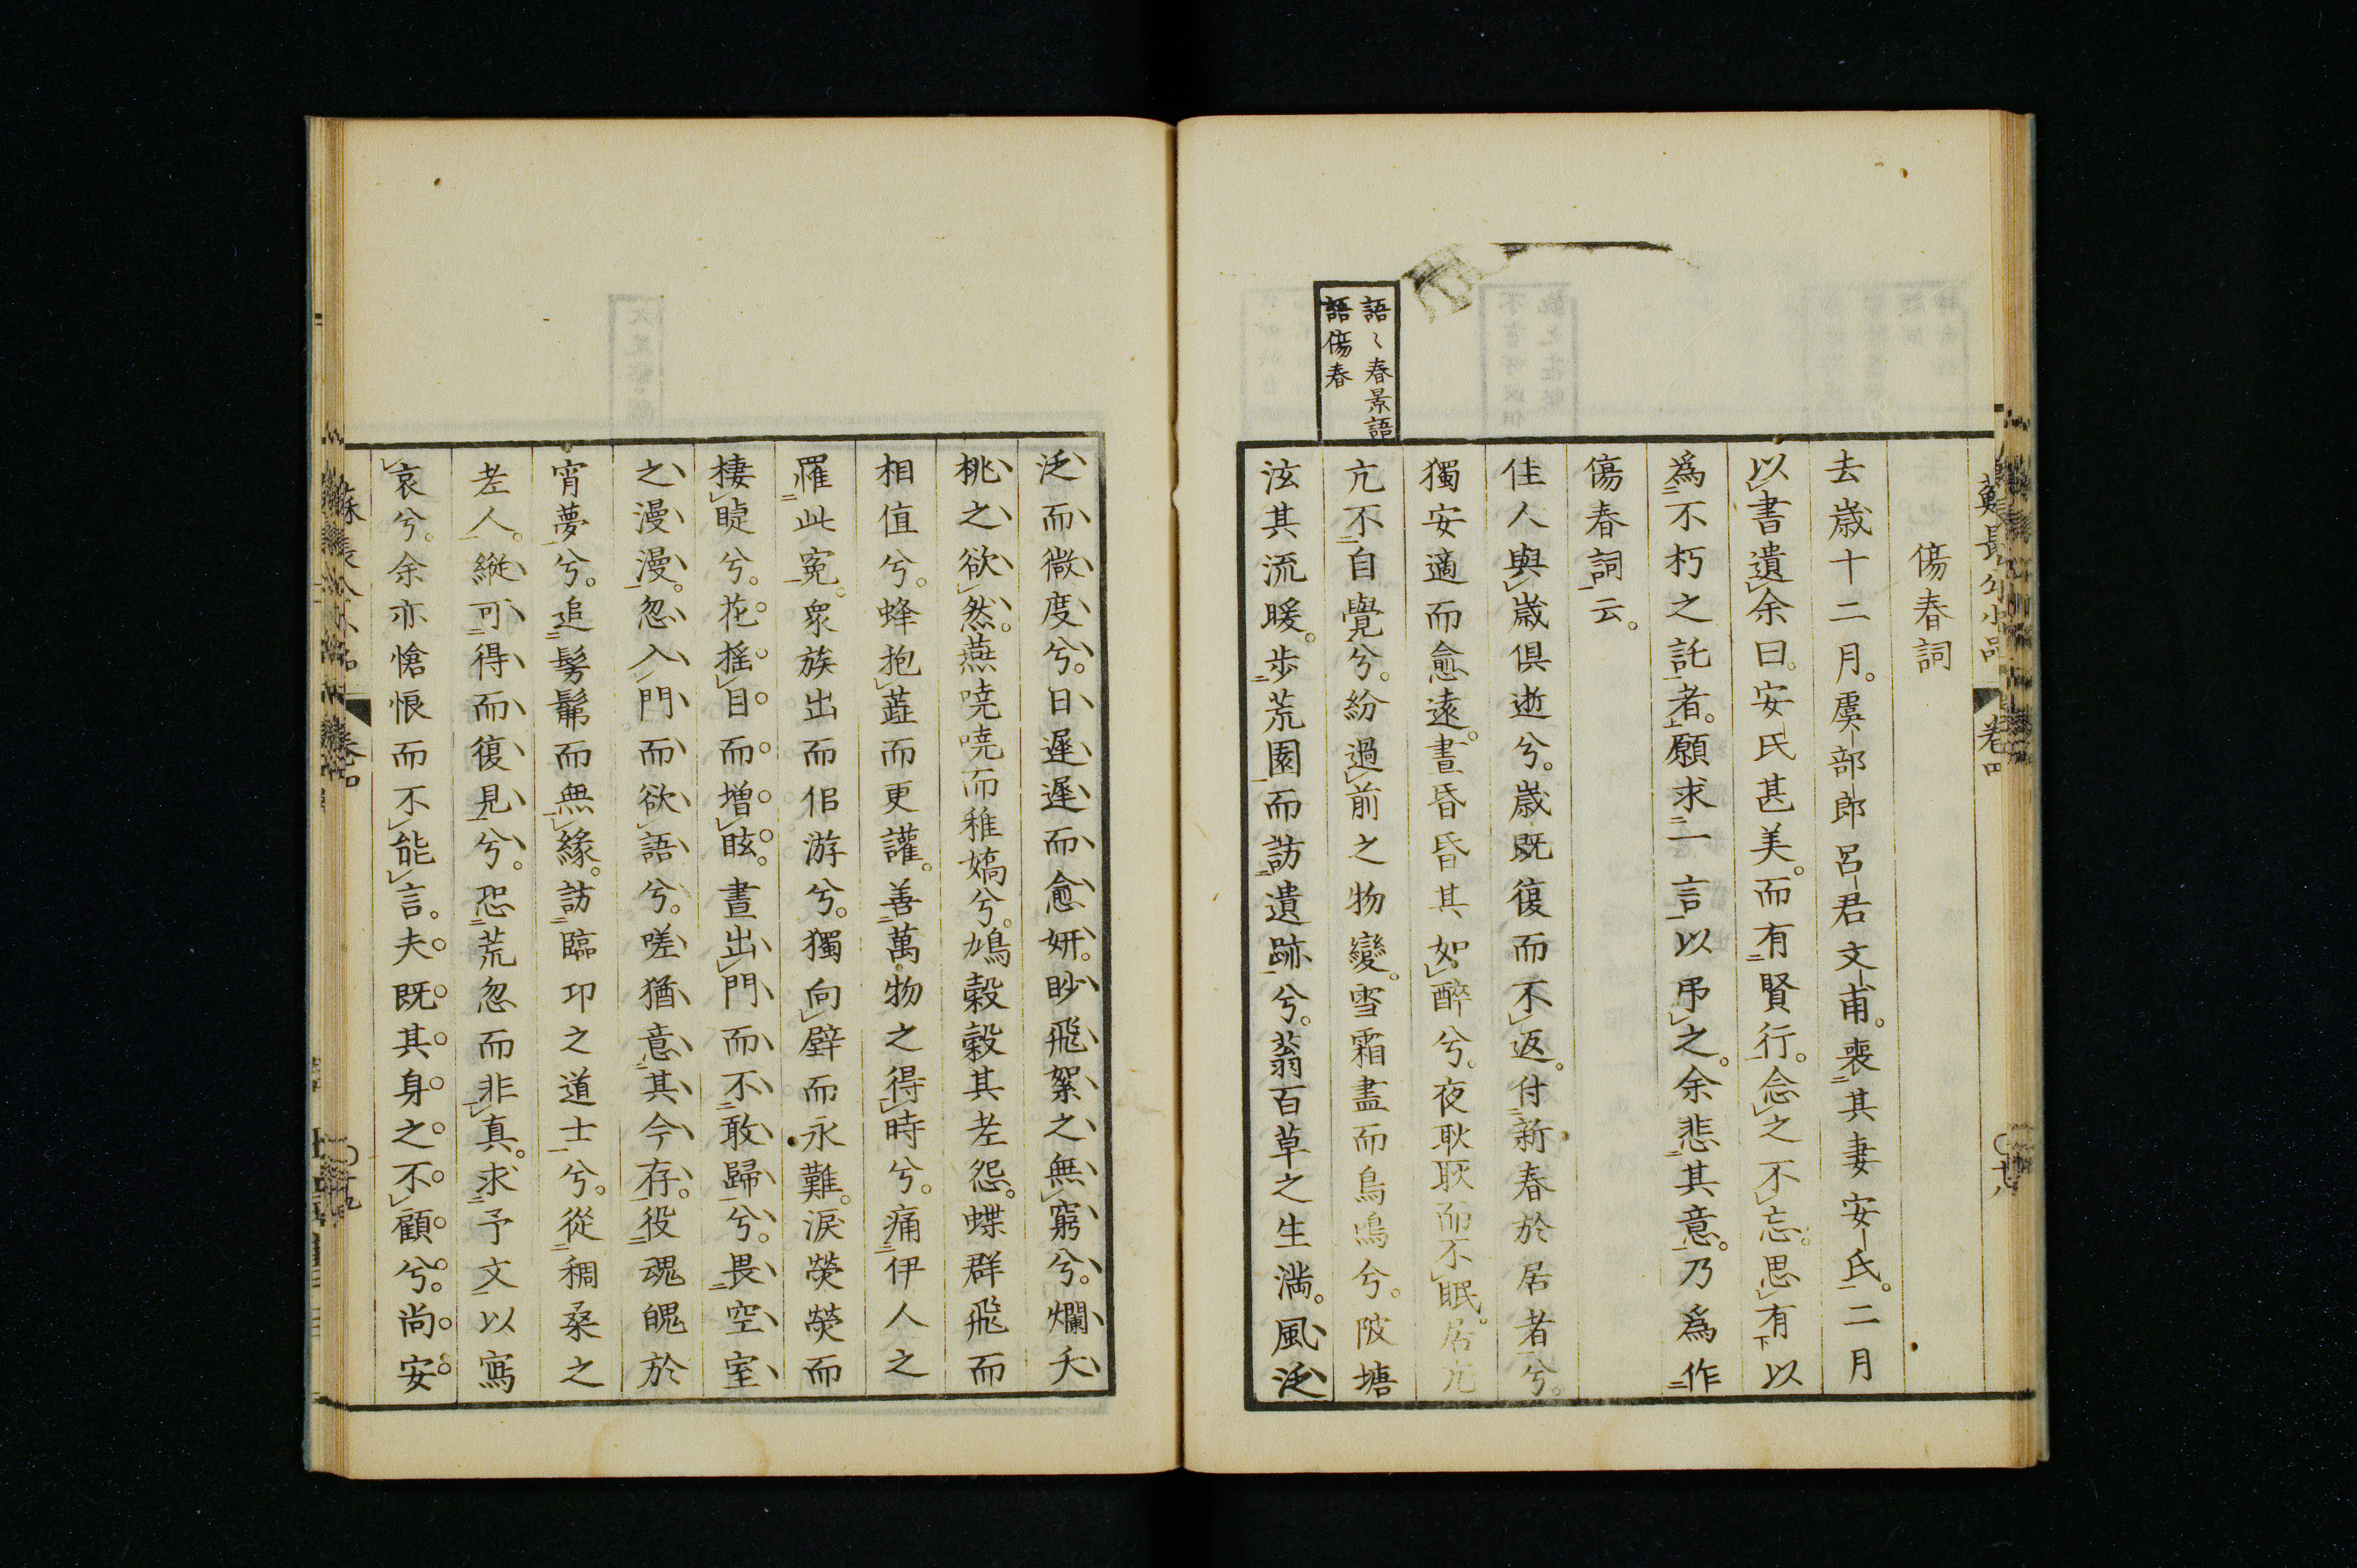 傷春詞
去歳十二月。虞部郎呂君文甫。喪其妻安氏。二月
以書遺余曰。安氏甚美。而有賢行。念之不忘。思有以
爲不朽之託者。願求一言以弔之。余悲其意。乃爲作
傷春詞云。
佳人與歳俱逝兮。歳既復而不返。付新春於居者兮。
獨安適而愈遠。晝昏昏其如醉兮。夜耿耿而不眠。居兀
兀不自覺兮。紛過前之物變。雪霜盡而鳥鳴兮。陂塘
泫其流暖。步荒園而訪遺跡兮。蓊百草之生滿。風泛
語〻春景語
語傷春
泛而微度兮。日遲遲而愈妍。眇飛絮之無窮兮。爛夭
桃之欲然。燕嘵嘵而稚嬌兮。鳩穀穀其老怨。蝶群飛而
相值兮。蜂抱蕋而更讙。善萬物之得時兮。痛伊人之
罹此寃。衆族出而侶游兮。獨向壁而永難。淚熒熒而
棲睫兮。花搖目而增眩。晝出門而不敢歸兮。畏空室
之漫漫。忽入門而欲語兮。嗟猶意其今存。役魂魄於
宵夢兮。追髣髴而無緣。訪臨卭之道士兮。從稠桑之
老人。縱可得而復見兮。恐荒忽而非真。求予文以寫
哀兮。余亦愴悢而不能言。夫既其身之不顧兮。尚安
蘇長公小品 卷四